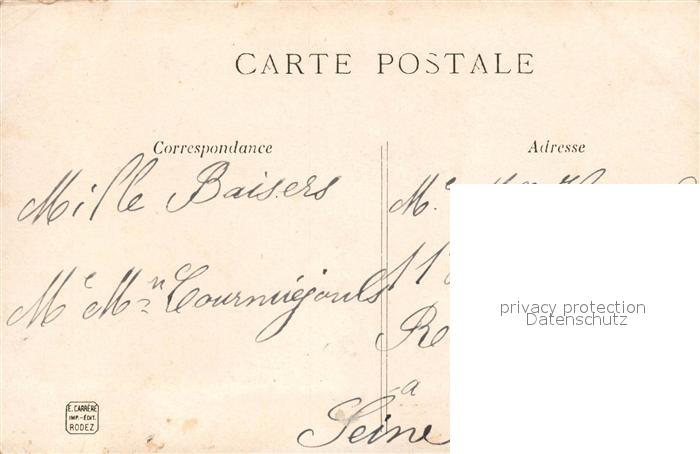 CARTE POSTALE
Correspondance
Adresse
Mille Baisers
Mᵉ Mⁿ Cournuéjouls
Mᵉ
11
Re
a
Seine
privacy protection
Datenschutz
E. CARRÈRE
IMP.-ÉDIT.
RODEZ